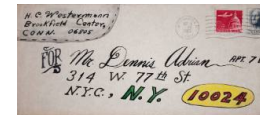 H.C. Westermann
Brookfield Center,
CONN. 06805
FOR Mr. Dennis Adrian APT. 7
314 W. 77th St.
N.Y.C., N.Y. 10024